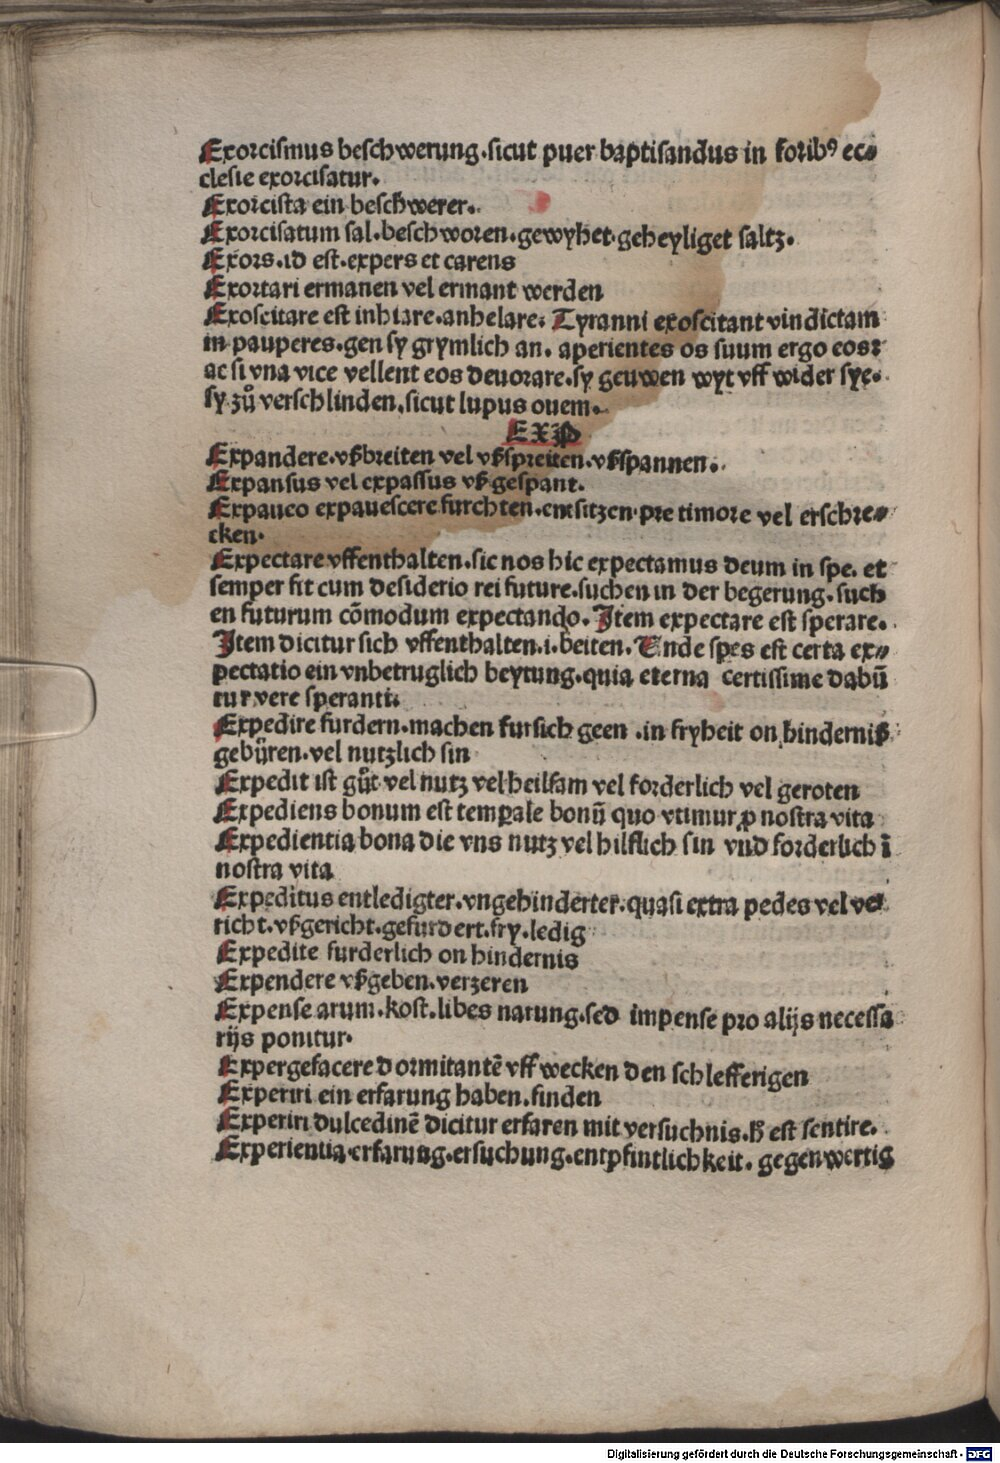 Exorcismus beschwerung.sicut puer baptisandus in foribꝰ ec⸗
clesie exorcisatur.
Exorcista ein beschwerer.
Exorcisatum sal.beschworen.gewyhet.geheyliget saltz.
Exors.id est.expers et carens
Exortari ermanen vel ermant werden
Exoscitare est inhiare.anhelare. Tyranni exoscitant vindictam
in pauperes.gen sy grymlich an. aperientes os suum ergo eos:
ac si vna vice vellent eos deuorare.sy geuwen wyt vff wider sye.
sy zů verschlinden.sicut lupus ouem.
EXP
Expandere.vßbreiten vel vßspreiten.vßspannen.
Expansus vel expassus vßgespant.
Expaueo expauescere furchten.entsitzen.pre timore vel erschre⸗
cken.
Expectare vffenthalten.sic nos hic expectamus deum in spe. et
semper fit cum desiderio rei future.suchen in der begerung.such
en futurum cōmodum expectando. Item expectare est sperare.
Item dicitur sich vffenthalten.i.beiten. Unde spes est certa ex⸗
pectatio ein vnbetruglich beytung.quia eterna certissime dabū
tur vere speranti.
Expedire furdern.machen fursich geen .in fryheit on hinderniß
gebüren.vel nutzlich sin
Expedit ist gůt vel nutz vel heilsam vel forderlich vel geroten
Expediens bonum est temꝑale bonū quo vtimur ꝓ nostra vita
Expedientia bona die vns nutz vel hilflich sin vnd forderlich ī
nostra vita
Expeditus entledigter.vngehinderter.quasi extra pedes vel ve
richt.vßgericht.gefurdert.fry.ledig
Expedite furderlich on hindernis
Expendere vßgeben.verzeren
Expense arum.kost.libes narung.sed impense pro alijs necessa
rijs ponitur.
Expergefacere dormitantē vff wecken den schlefferigen
Experiri ein erfarung haben.finden
Experiri dulcedinē dicitur erfaren mit versuchnis.h̄ est sentire.
Experientia.erfarung.ersuchung.entpfintlichkeit. gegenwertig
Digitalisierung gefördert durch die Deutsche Forschungsgemeinschaft - DFG